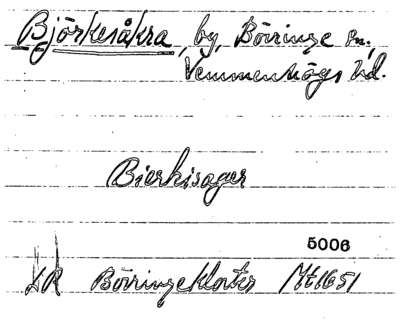 Björkesåkra, by, Börringe sn.,
Vemmenhögs hd.
Bierkisager
5006
LR Börringekloster Mt 1651